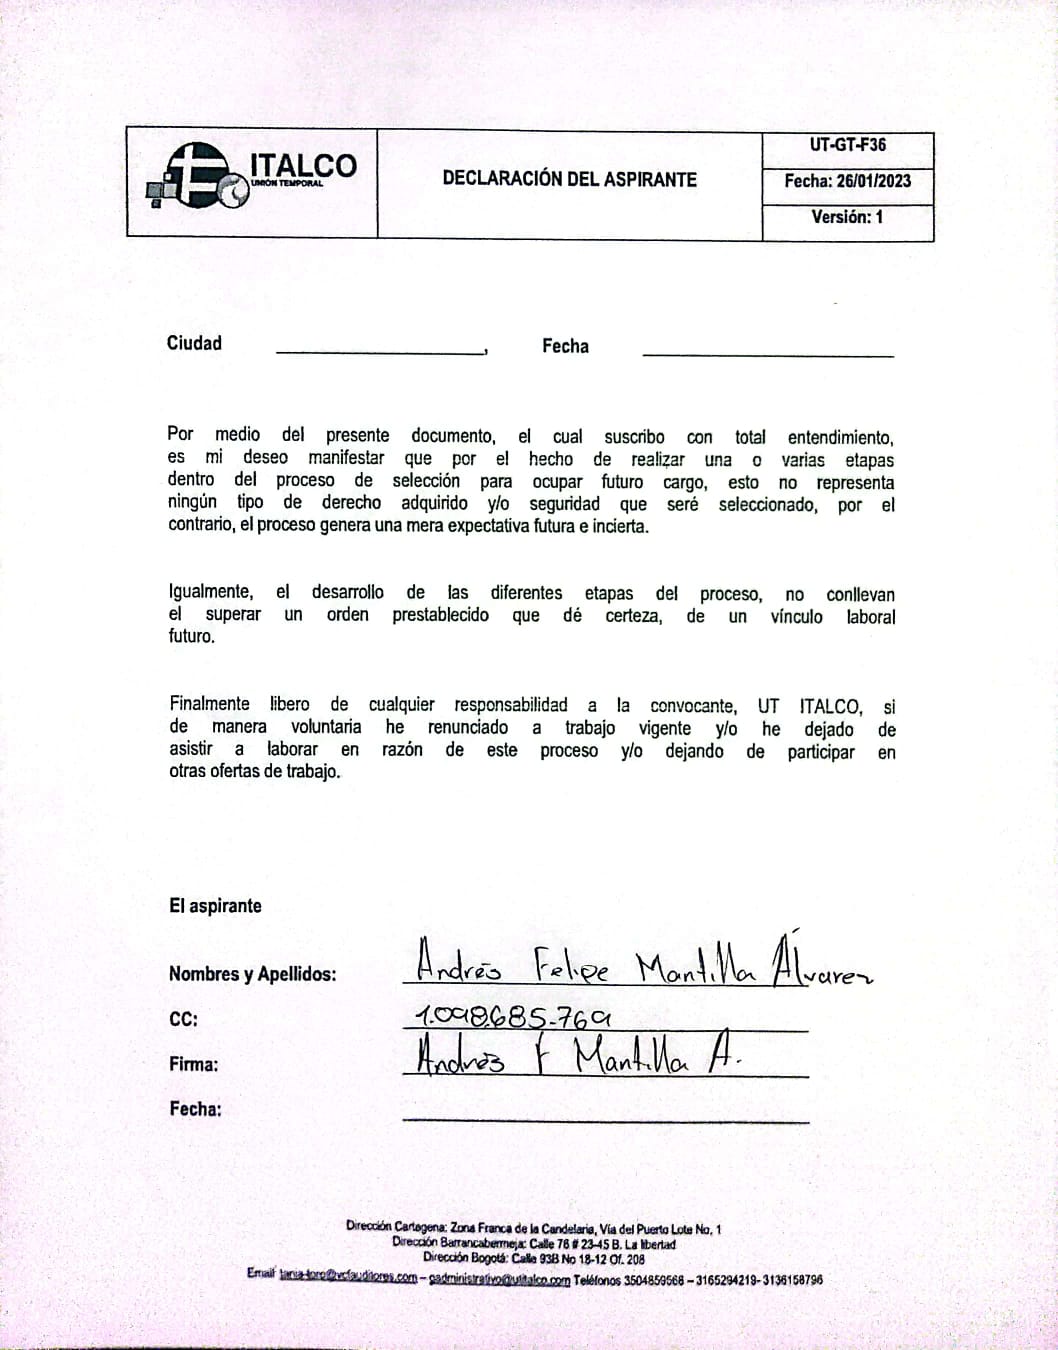 ITALCO
UNIÓN TEMPORAL
DECLARACIÓN DEL ASPIRANTE
UT-GT-F36
Fecha: 26/01/2023
Versión: 1
Ciudad , Fecha
Por medio del presente documento, el cual suscribo con total entendimiento,
es mi deseo manifestar que por el hecho de realizar una o varias etapas
dentro del proceso de selección para ocupar futuro cargo, esto no representa
ningún tipo de derecho adquirido y/o seguridad que seré seleccionado, por el
contrario, el proceso genera una mera expectativa futura e incierta.
Igualmente, el desarrollo de las diferentes etapas del proceso, no conllevan
el superar un orden prestablecido que dé certeza, de un vínculo laboral
futuro.
Finalmente libero de cualquier responsabilidad a la convocante, UT ITALCO, si
de manera voluntaria he renunciado a trabajo vigente y/o he dejado de
asistir a laborar en razón de este proceso y/o dejando de participar en
otras ofertas de trabajo.
El aspirante
Nombres y Apellidos: Andrés Felipe Mantilla Álvarez
CC: 1.098.685.769
Firma: Andrés F Mantilla A.
Fecha:
Dirección Cartagena: Zona Franca de la Candelaria, Vía del Puerto Lote No. 1
Dirección Barrancabermeja: Calle 76 # 23-45 B. La libertad
Dirección Bogotá: Calle 93B No 18-12 Of. 208
Email: tania.toro@vcfauditores.com – gadministrativo@utitalco.com Teléfonos 3504859568 – 3165294219- 3136158796